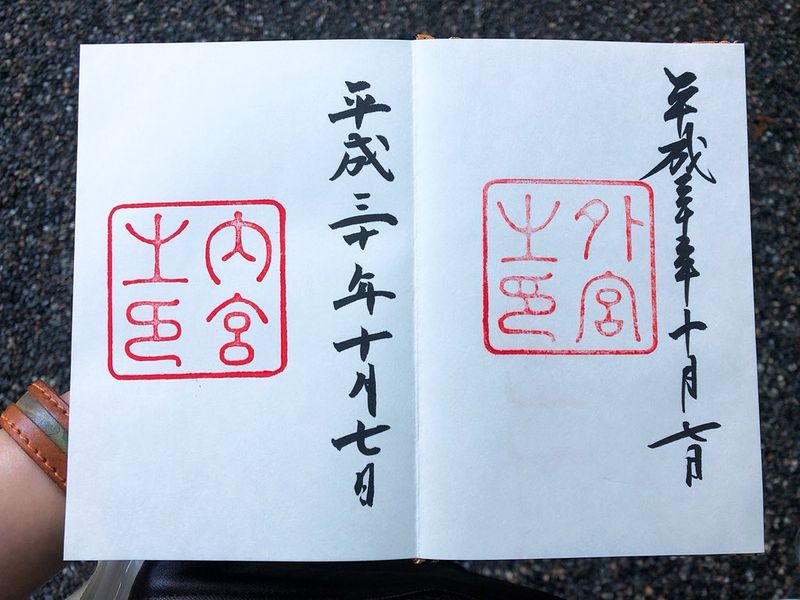 平成三十年十月七日
外宮
之印
平成三十年十月七日
内宮
之印